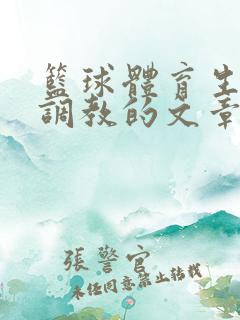 籃球體育生
調教的文章
張警官
未任同意禁止转载